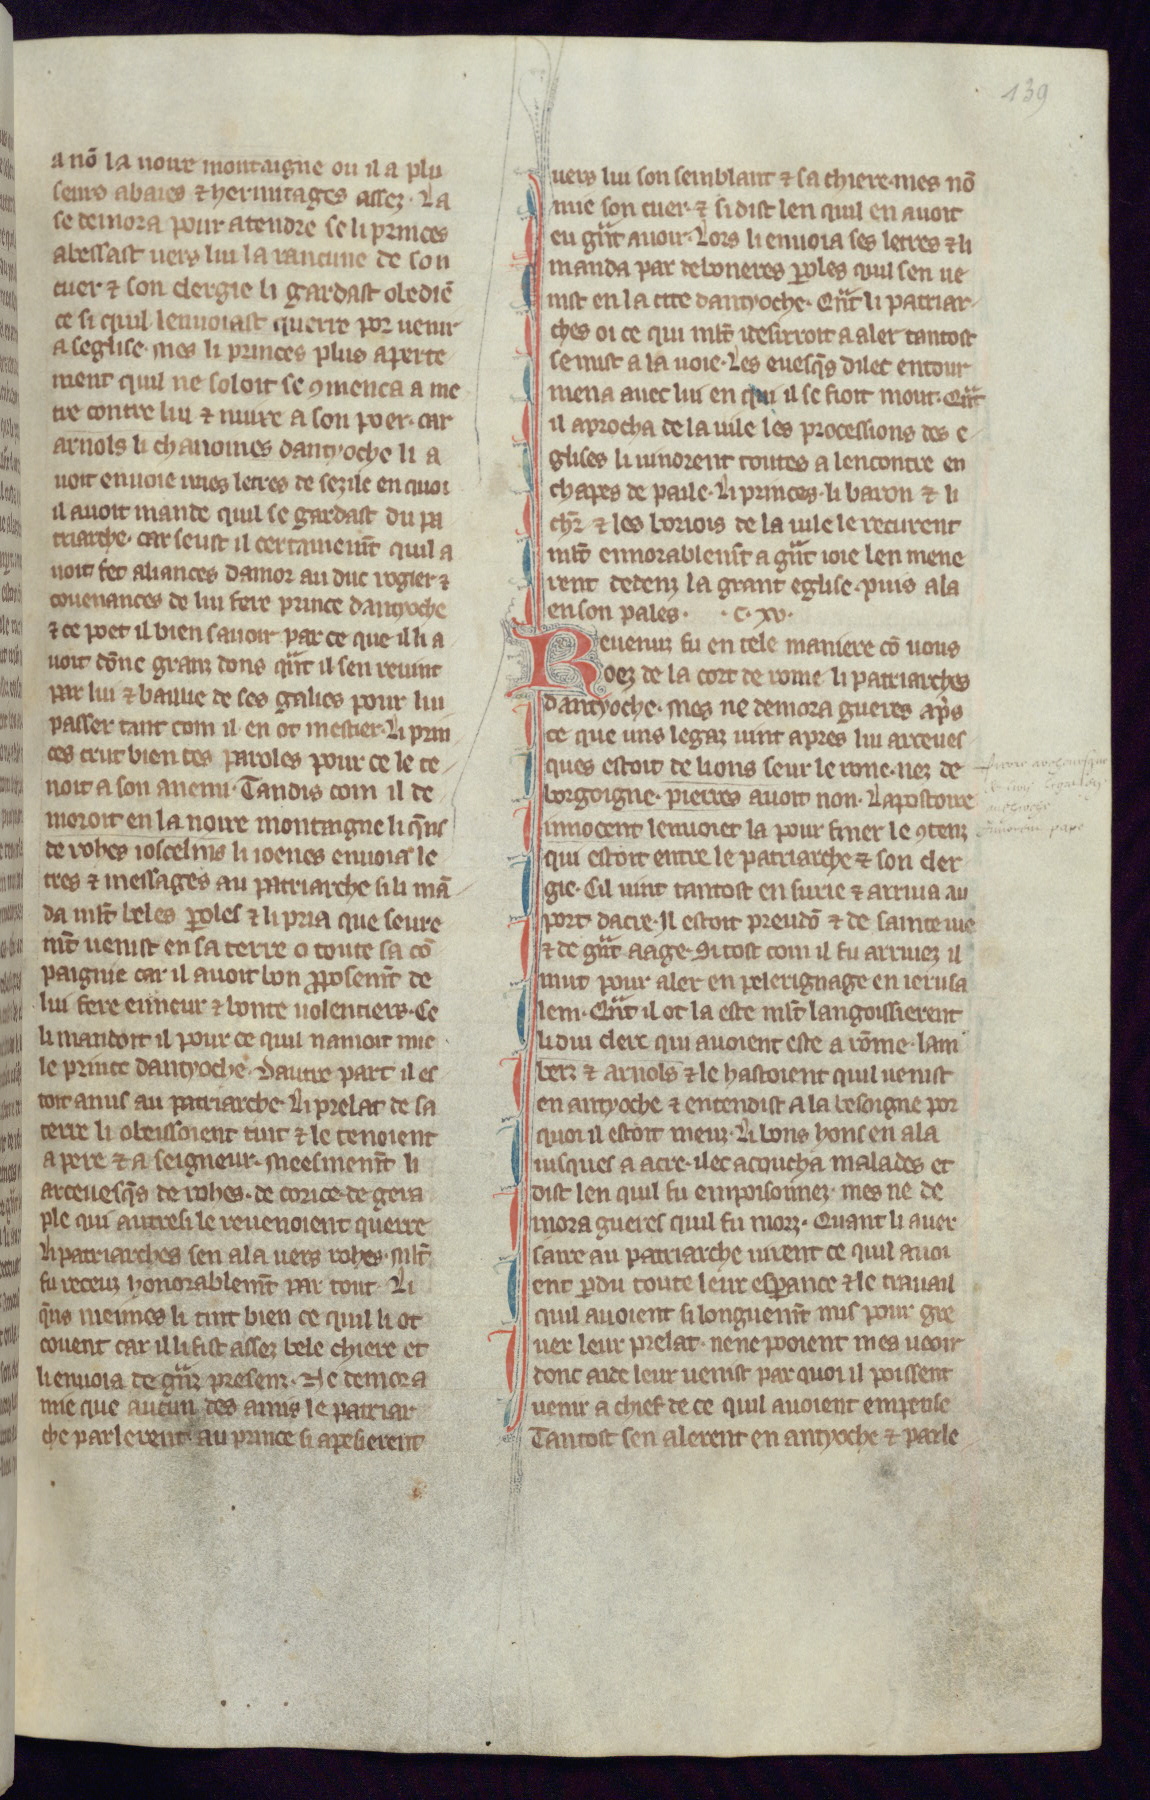 139
a nō la noire montaigne ou il a plu
seurs abaies ⁊ hermitages assez. La
se demora pour atendre se li princes
abessast uers lui la rancune de son
cuer ⁊ son clergie li gardast obediē
ce si quil lenuoiast querre por uenir
a seglise. Mes li princes plus aperte
ment quil ne soloit se ꝯmenca a me
tre contre lui ⁊ nuire a son poer. car
arnols li chanoines dantyoche li a
uoit enuoie unes letres de sezile en quoi
il auoit mande quil se gardast du pa
triarche. car seust il certainemt̄ quil a
uoit fet aliances damor au duc rogier ⁊
couenances de lui fere prince dantyoche
⁊ ce poet il bien sauoir par ce que il li a
uoit dōne granz dons qⁿt il sen reuint
par lui ⁊ baillie de ses galies pour lui
passer tant com il en ot mestier. Li prin
ces crut bien ces paroles pour ce le te
noit a son anemi. Tandis com il de
moroit en la noire montaigne li q̄ns
de rohes ioscelins li ioenes enuoia le
tres ⁊ messages au patriarche si li mā
da ml̄t beles ꝑoles ⁊ li pria que seure
mt̄ uenist en sa terre o toute sa cō
paignie car il auoit bon ꝓposemt̄ de
lui fere enneur ⁊ bonte uolentiers. Ce
li mandoit il pour ce quil namoit mie
le prince dantyoche. Dautre part il es
toit amis au patriarche. Li prelat de sa
terre li obeissoient tuit ⁊ le tenoient
a pere ⁊ a seigneur. Meesmemt̄ li
arceuesq̄s de rohes. de corice. de gera
ple qui autresi le reuenoient querre
Li patriarches sen ala uers rohes. Ml̄t
fu receuz honorablemt̄ par tout. Li
q̄ns meimes li tint bien ce quil li ot
couent car il li fist assez bele chiere et
li enuoia de gⁿnz presenz. Ne demora
mie que aucun des amis le patriar
che parlerent au prince si apesierent
uers lui son semblant ⁊ sa chiere. mes nō
mie son cuer. ⁊ si dist len quil en auoit
eu gⁿt auoir. Lors li enuoia ses letres ⁊ li
manda par deboneres ꝑoles quil sen ue
nist en la cite dantyoche. Qⁿt li patriar
ches oi ce qui ml̄t i desirroit a aler tantost
se mist a la uoie. Les euesq̄s dilec entour
mena auec lui en qui il se fioit mout. Qⁿt
il aprocha de la uile les processions des e
glises li uindrent toutes a lencontre en
chapes de paile. Li princes. li baron ⁊ li
chr̄ ⁊ les boriois de la uile le recurent
ml̄t ennorablemt̄ a gⁿt ioie len mene
rent dedenz la grant eglise. puis ala
en son pales. .c. xv.
Reuenuz fu en tele maniere cō uous
oez de la cort de rome li patriarches
dantyoche. Mes ne demora gueres ap̄s
ce que uns legaz uint apres lui arceues
ques estoit de lions seur le rone. nez de
borgoigne. pierres auoit non. Lapostoire
innocent lenuoiet la pour finer le ꝯtenz
qui estoit entre le patriarche ⁊ son cler
gie. Cil uint tantost en surie ⁊ arriua au
port dacre. Il estoit preudō ⁊ de sainte uie
⁊ de gⁿt aage. Si tost com il fu arriuez il
mut pour aler en pelerignage en ierusa
lem. Qⁿt il ot la este ml̄t langoissierent
li dui clerc qui auoient este a rōme. lam
berz ⁊ arnols ⁊ le hastoient quil uenist
en antyoche ⁊ entendist a la besoigne por
quoi il estoit meuz. Li bons hons en ala
iusques a acre. ilec acoucha malades et
dist len quil fu empoisonnez. mes ne de
mora gueres quil fu morz. Quant li auer
saire au patriarche uirent ce quil auoi
ent ꝑdu toute leur esꝑance ⁊ le trauail
quil auoient si longuemt̄ mis pour gre
uer leur prelat. ne ne pooient mes ueoir
donc aide leur uenist par quoi il poissent
uenir a chief de ce quil auoient empense
Tantost sen alerent en antyoche ⁊ parle